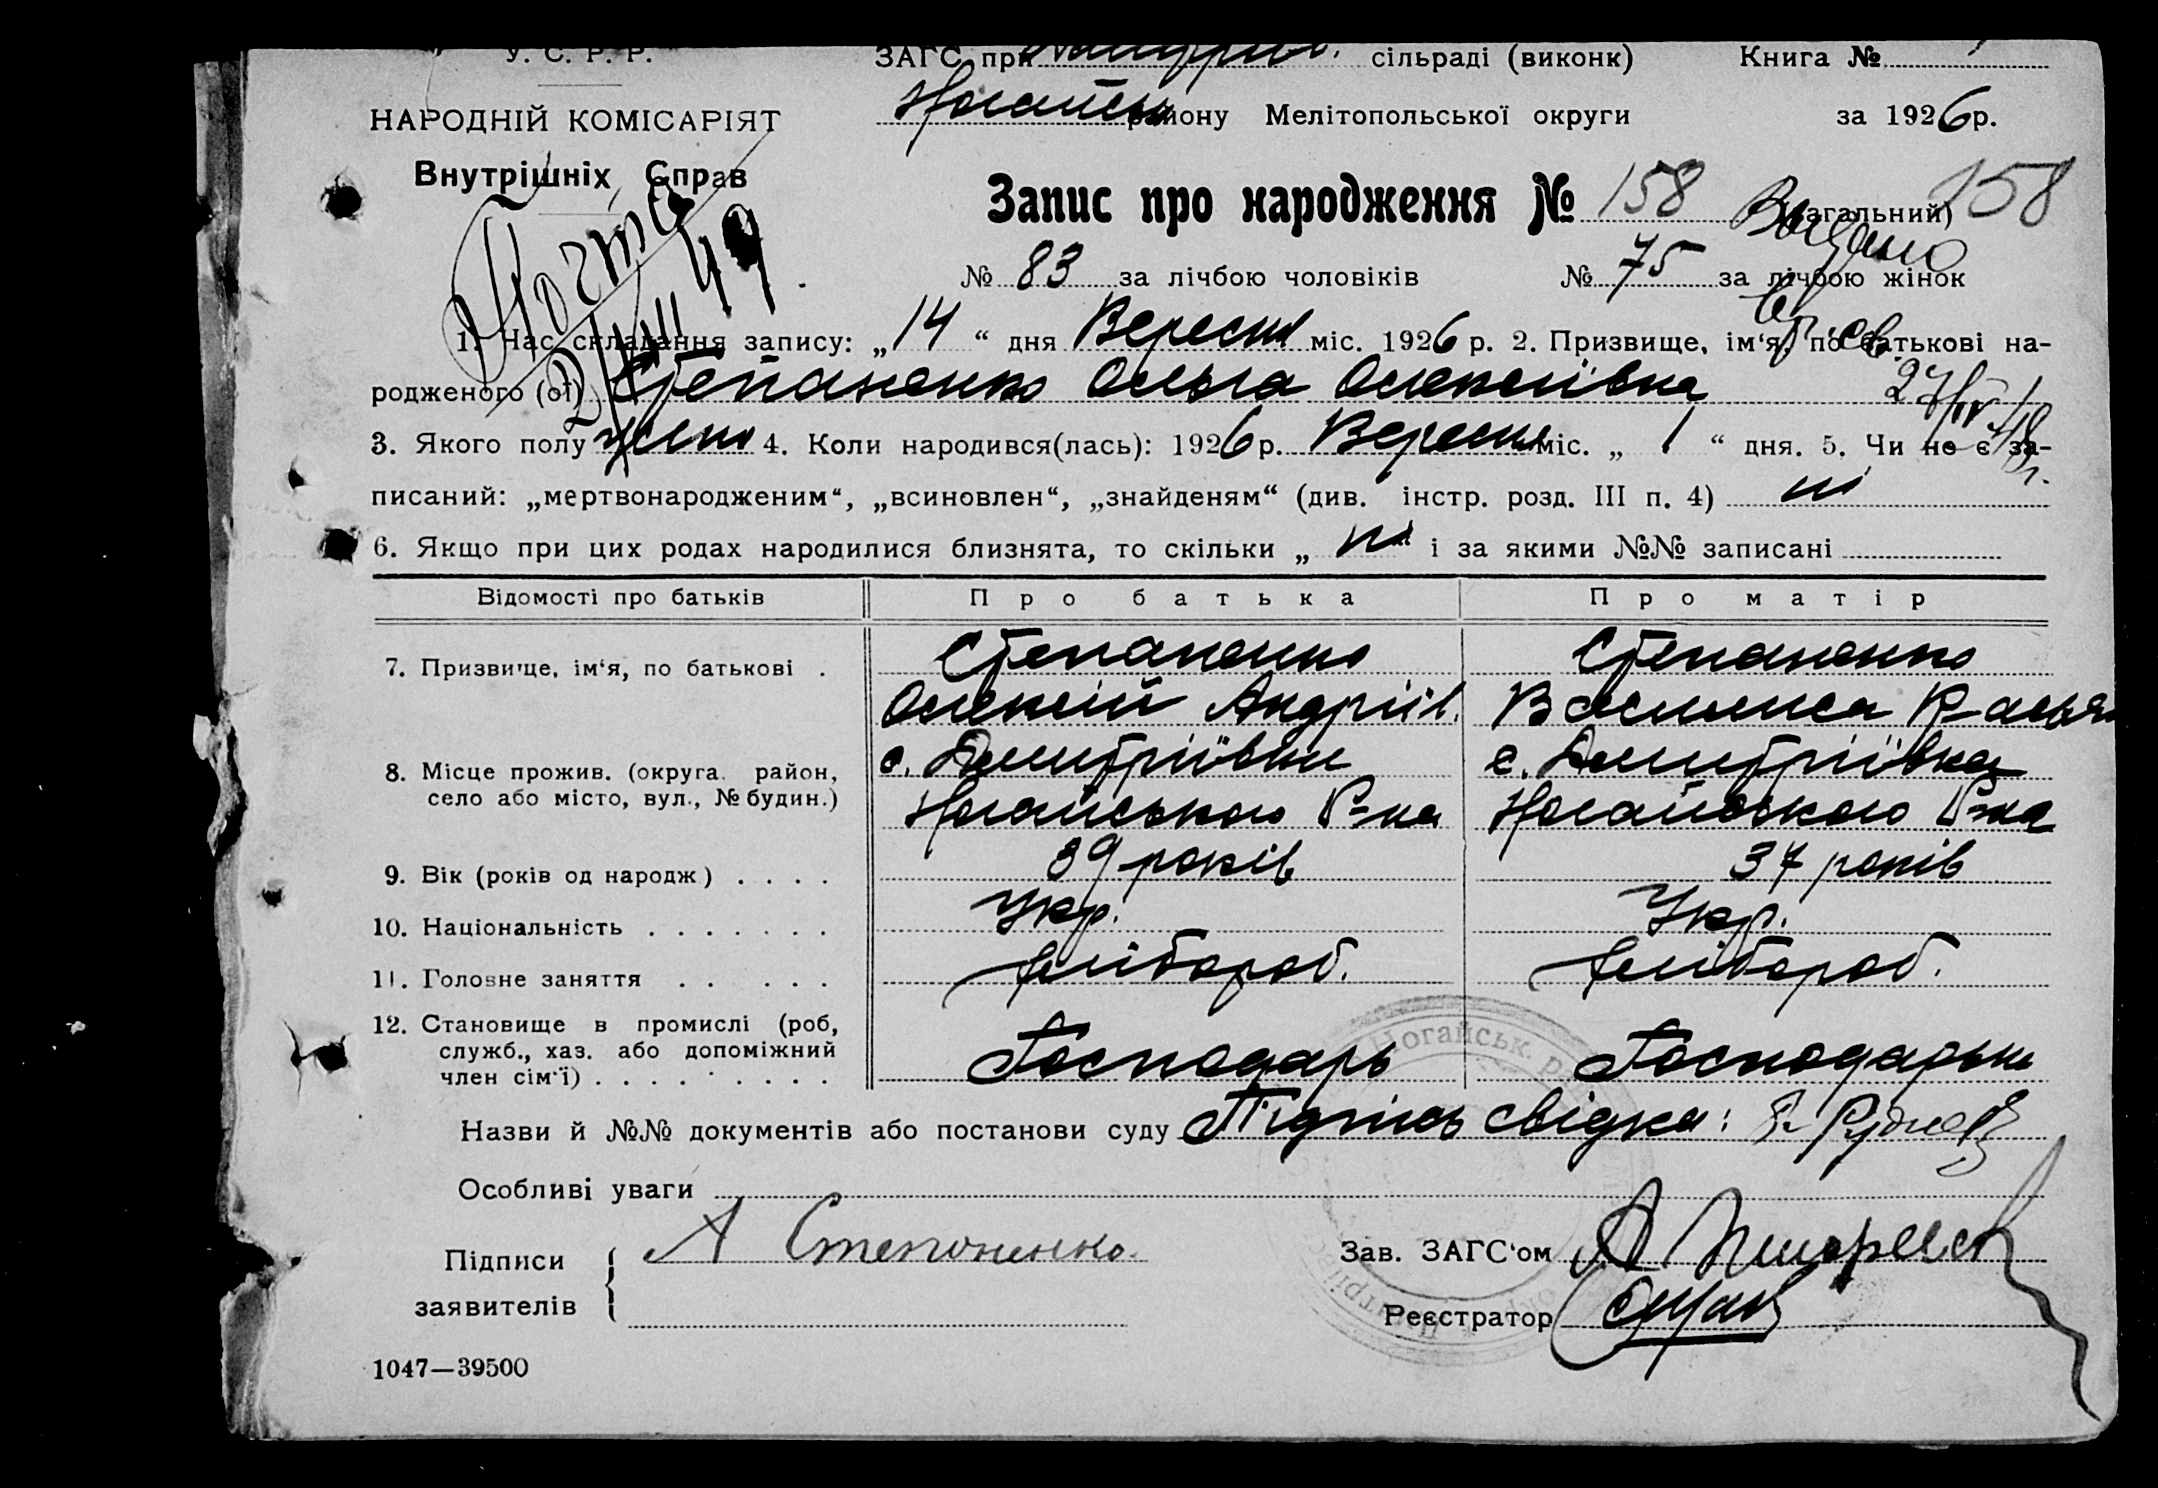 У. С. Р. Р. ЗАГС при сільраді (виконк) Книга №
НАРОДНІЙ КОМІСАРІЯТ Ногайськ району Мелітопольської округи за 1926 р.
Внутрішніх Справ
Запис про народження № 158 (загальний) 158
Почта Выдано
49
№ 83 за лічбою чоловіків № 75 за лічбою жінок
1. Час складання запису: „14“ дня Вересня міс. 1926 р. 2. Призвище, ім‘я, по батькові на-
родженого (ої) Степаненко Ольга Олексіївна
3. Якого полу жіно 4. Коли народився(лась): 1926 р. Вересня міс. „1“ дня. 5. Чи не є за-
писаний: „мертвонародженим“, „всиновлен“, „знайденям“ (див. інстр. розд. III п. 4) ні
6. Якщо при цих родах народилися близнята, то скільки „ні“ і за якими №№ записані
Відомості про батьків Про батька Про матір
7. Призвище, ім‘я, по батькові . Степаненко Степаненко
Олексій Андріїв. Василиса Касья
8. Місце прожив. (округа, район, с. Дмитріївки с. Дмитріївка
село або місто, вул., № будин.) Ногайського Р-на Ногайського Р-на
9. Вік (років од народж) . . . . 39 років 37 років
10. Національність . . . . . . . Укр. Укр.
11. Головне заняття . . . . . хлібороб. хлібороб.
12. Становище в промислі (роб,
служб., хаз. або допоміжний Господарь Господарька
член сім‘ї) . . . . . . . . .
Ногайськ. р
Назви й №№ документів або постанови суду Підпись свідка:
Особливі уваги
Підписи А Степоненко.
заявителів
Зав. ЗАГС‘ом
Реєстратор
1047—39500